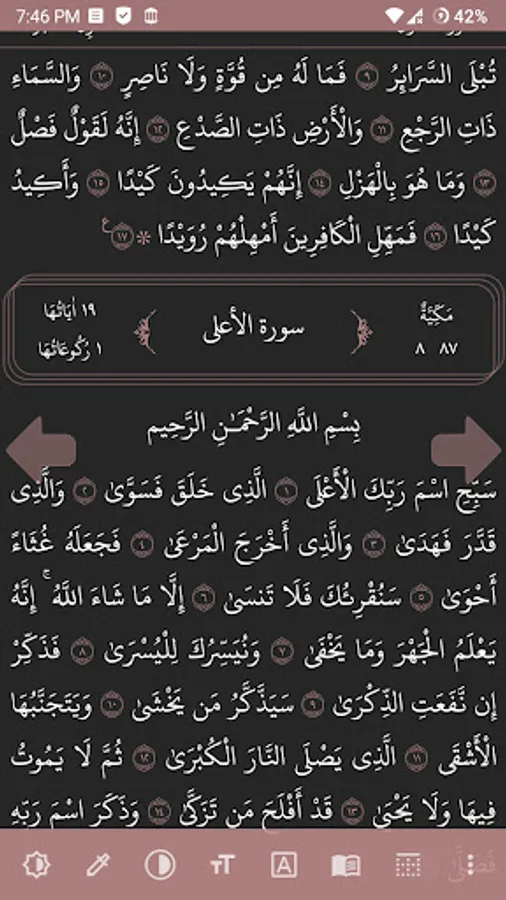 7:46 PM 42%
تُبْلَى السَّرَابِرُ ٩ فَمَا لَهُ مِن قُوَّةٍ وَلَا نَاصِرٍ ١٠ وَالسَّمَاءِ
ذَاتِ الرَّجْعِ ١١ وَالْأَرْضِ ذَاتِ الصَّدْعِ ١٢ إِنَّهُ لَقَوْلٌ فَصْلٌ
١٣ وَمَا هُوَ بِالْهَزْلِ ١٤ إِنَّهُمْ يَكِيدُونَ كَيْدًا ١٥ وَأَكِيدُ
كَيْدًا ١٦ فَمَهِّلِ الْكَافِرِينَ أَمْهِلْهُمْ رُوَيْدًا ۞ ١٧ ع
مَكِّيَّةٌ
٨٧ ٨
سورة الأعلى
١٩ اٰيَاتُهَا
١ رُكُوعَاتُهَا
بِسْمِ اللَّهِ الرَّحْمَـٰنِ الرَّحِيمِ
سَبِّحِ اسْمَ رَبِّكَ الْأَعْلَى ١ الَّذِى خَلَقَ فَسَوَّىٰ ٢ وَالَّذِى
قَدَّرَ فَهَدَىٰ ٣ وَالَّذِى أَخْرَجَ الْمَرْعَىٰ ٤ فَجَعَلَهُ غُثَاءً
أَحْوَىٰ ٥ سَنُقْرِئُكَ فَلَا تَنسَىٰ ٦ إِلَّا مَا شَاءَ اللَّهُ ۚ إِنَّهُ
يَعْلَمُ الْجَهْرَ وَمَا يَخْفَىٰ ٧ وَنُيَسِّرُكَ لِلْيُسْرَىٰ ٨ فَذَكِّرْ
إِن نَّفَعَتِ الذِّكْرَىٰ ٩ سَيَذَّكَّرُ مَن يَخْشَىٰ ١٠ وَيَتَجَنَّبُهَا
الْأَشْقَى ١١ الَّذِى يَصْلَى النَّارَ الْكُبْرَىٰ ١٢ ثُمَّ لَا يَمُوتُ
فِيهَا وَلَا يَحْيَىٰ ١٣ قَدْ أَفْلَحَ مَن تَزَكَّىٰ ١٤ وَذَكَرَ اسْمَ رَبِّهِ
فَصَلَّىٰ